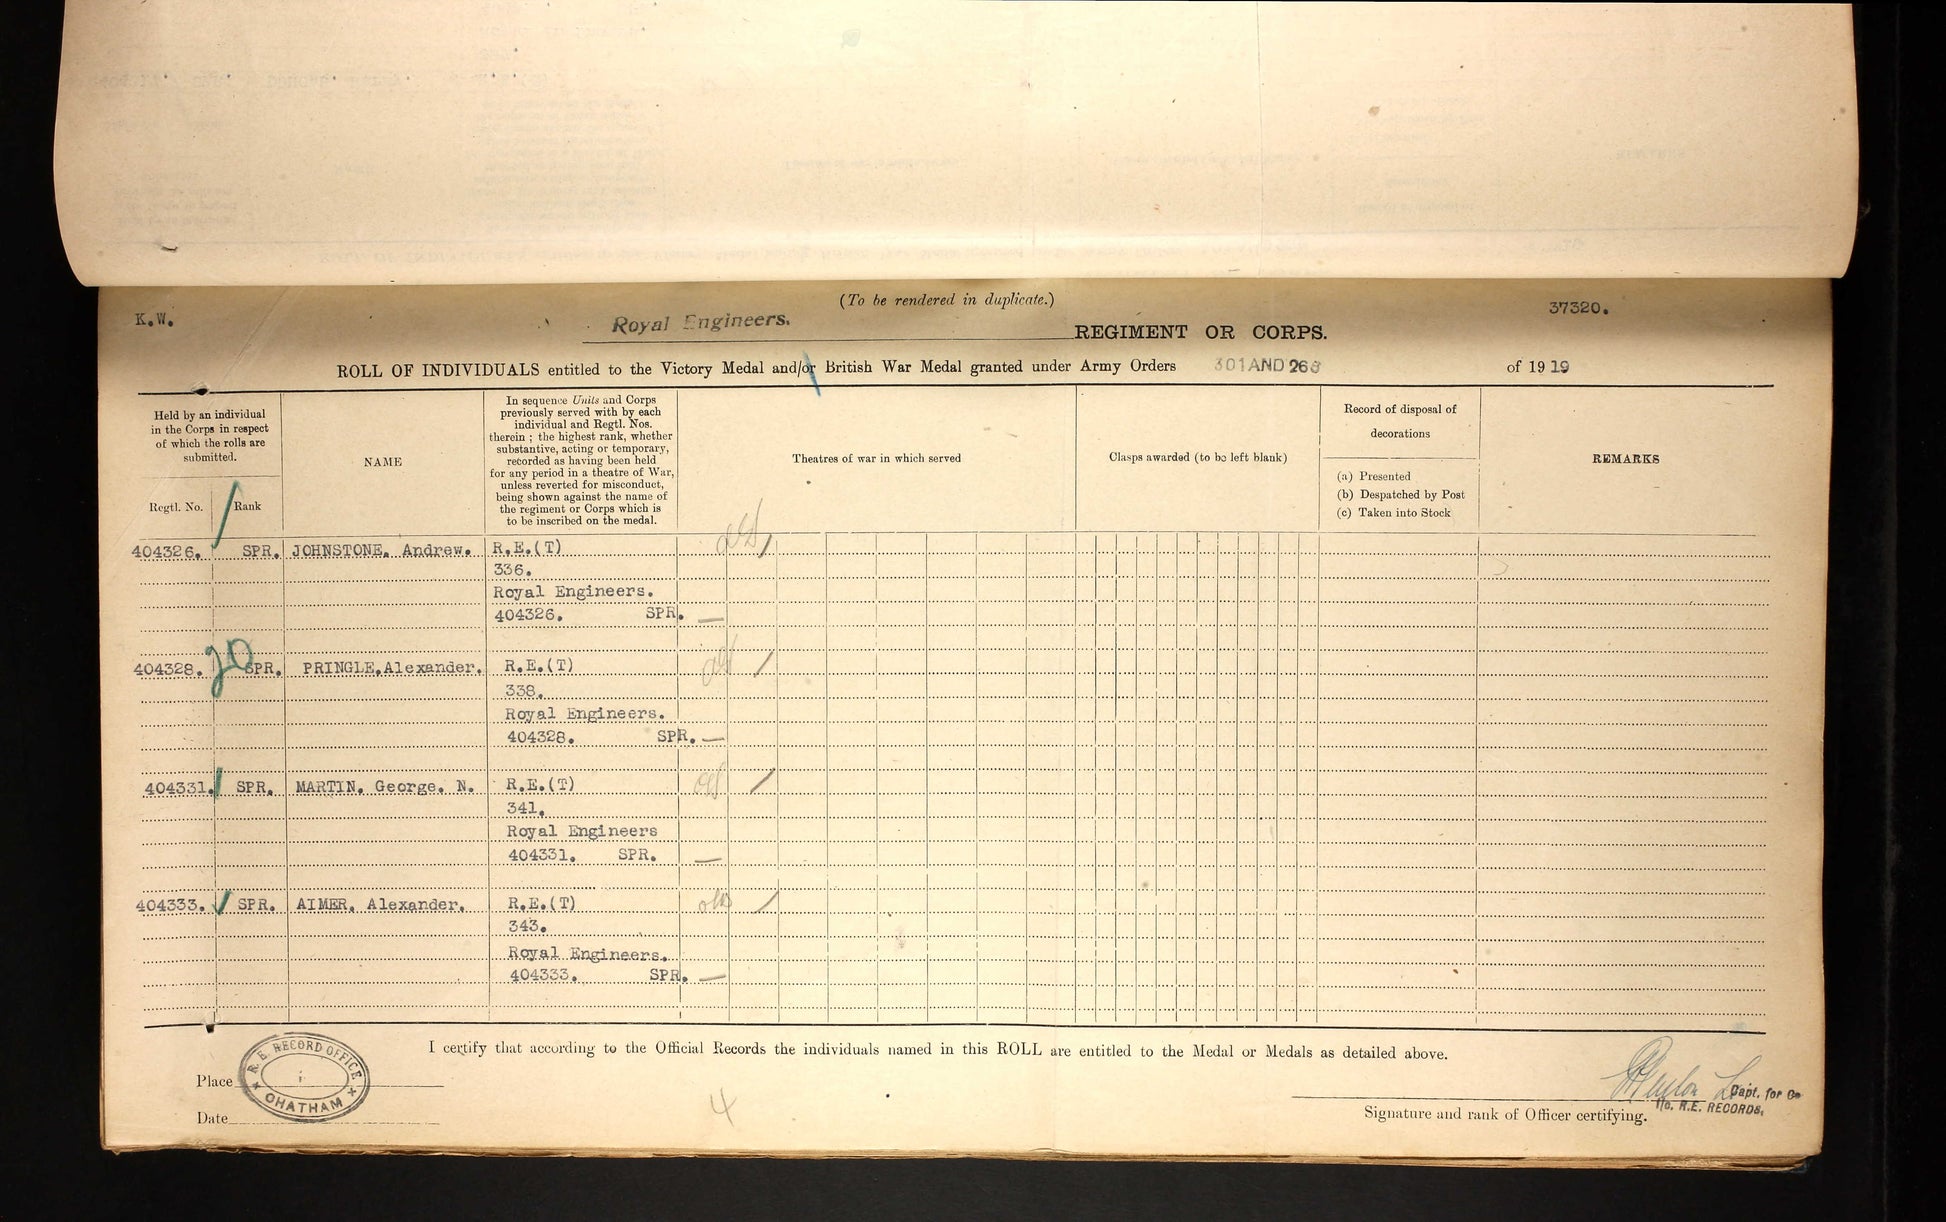 (To be rendered in duplicate.)
K.W.
37320.
Royal Engineers. REGIMENT OR CORPS.
ROLL OF INDIVIDUALS entitled to the Victory Medal and/or British War Medal granted under Army Orders 301 AND 266 of 1919
Held by an individual
in the Corps in respect
of which the rolls are
submitted.
Regtl. No.
Rank
NAME
In sequence Units and Corps
previously served with by each
individual and Regtl. Nos.
therein ; the highest rank, whether
substantive, acting or temporary,
recorded as having been held
for any period in a theatre of War,
unless reverted for misconduct,
being shown against the name of
the regiment or Corps which is
to be inscribed on the medal.
Theatres of war in which served
Clasps awarded (to be left blank)
Record of disposal of
decorations
(a) Presented
(b) Despatched by Post
(c) Taken into Stock
REMARKS
404326. SPR. JOHNSTONE, Andrew. R.E.(T)
336.
Royal Engineers.
404326. SPR.
404328. SPR. PRINGLE, Alexander. R.E.(T)
338.
Royal Engineers.
404328. SPR.
404331. SPR. MARTIN, George. N. R.E.(T)
341.
Royal Engineers
404331. SPR.
404333. SPR. AIMER, Alexander. R.E.(T)
343.
Royal Engineers.
404333. SPR.
I certify that according to the Official Records the individuals named in this ROLL are entitled to the Medal or Medals as detailed above.
Place
R. E. RECORD OFFICE
CHATHAM
Date
4
Capt. for Co
i/c. R.E. RECORDS.
Signature and rank of Officer certifying.